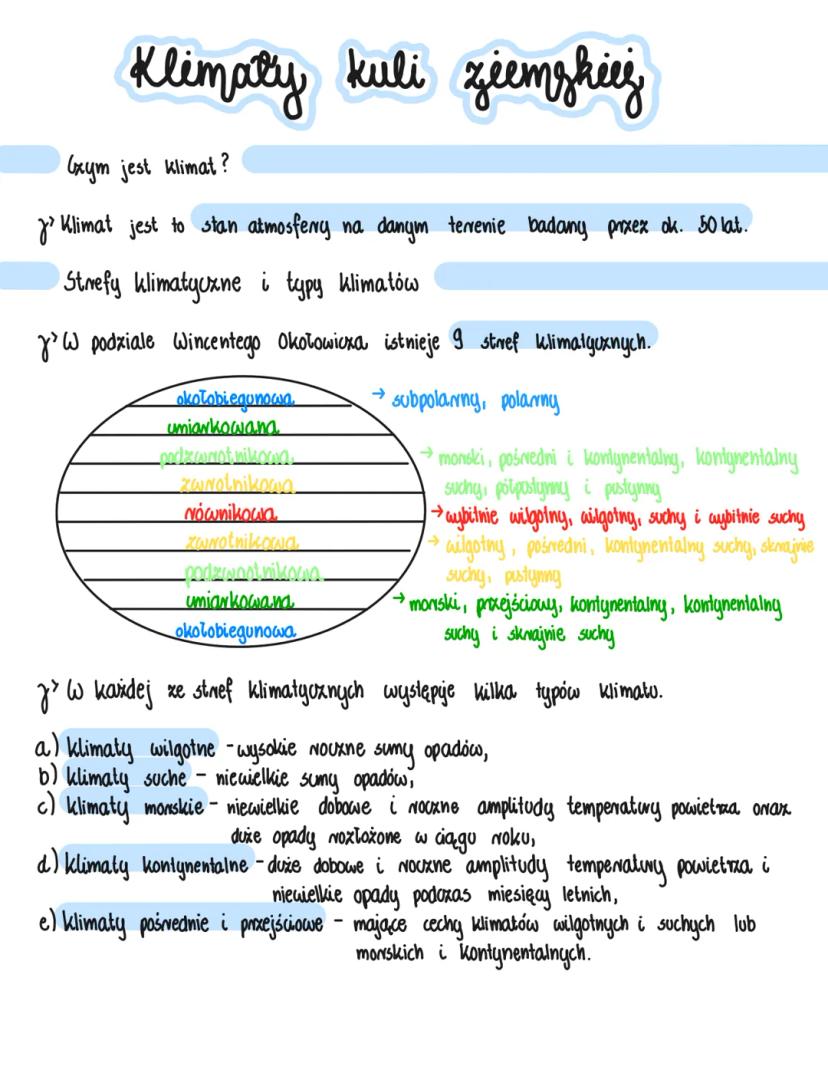 Klimaty kuli ziemskiej
Czym jest klimat?
Klimat jest to stan atmosfery na danym terenie badany przez ok. 50 lat.
Strefy klimatyczne i typy klimatów
W podziale Wincentego Okołowicza istnieje 9 stref klimatycznych.
okołobiegunowa → subpolarny, polarny
umiarkowana
podzwrotnikowa → morski, pośredni i kontynentalny, kontynentalny
zwrotnikowa suchy, półpustynny i pustynny
równikowa → wybitnie wilgotny, wilgotny, suchy i wybitnie suchy
zwrotnikowa → wilgotny, pośredni, kontynentalny suchy, skrajnie
podzwrotnikowa suchy, pustynny
umiarkowana → morski, przejściowy, kontynentalny, kontynentalny
okołobiegunowa suchy i skrajnie suchy
W każdej ze stref klimatycznych występuje kilka typów klimatu.
a) klimaty wilgotne - wysokie roczne sumy opadów,
b) klimaty suche - niewielkie sumy opadów,
c) klimaty morskie - niewielkie dobowe i roczne amplitudy temperatury powietrza oraz
duże opady rozłożone w ciągu roku,
d) klimaty kontynentalne - duże dobowe i roczne amplitudy temperatury powietrza i
niewielkie opady podczas miesięcy letnich,
e) klimaty pośrednie i przejściowe - mające cechy klimatów wilgotnych i suchych lub
morskich i kontynentalnych.